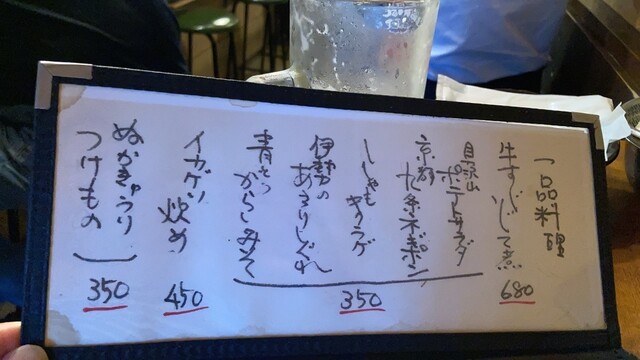 一品料理
牛すじ煮
680
具沢山
ポテトサラダ
京都
九条ネギポン
ししゃもキクラゲ
伊勢の
あさりしぐれ
青とう
からみそ
350
イカゲソ炒め
450
ぬかきゅうり
つけもの
350